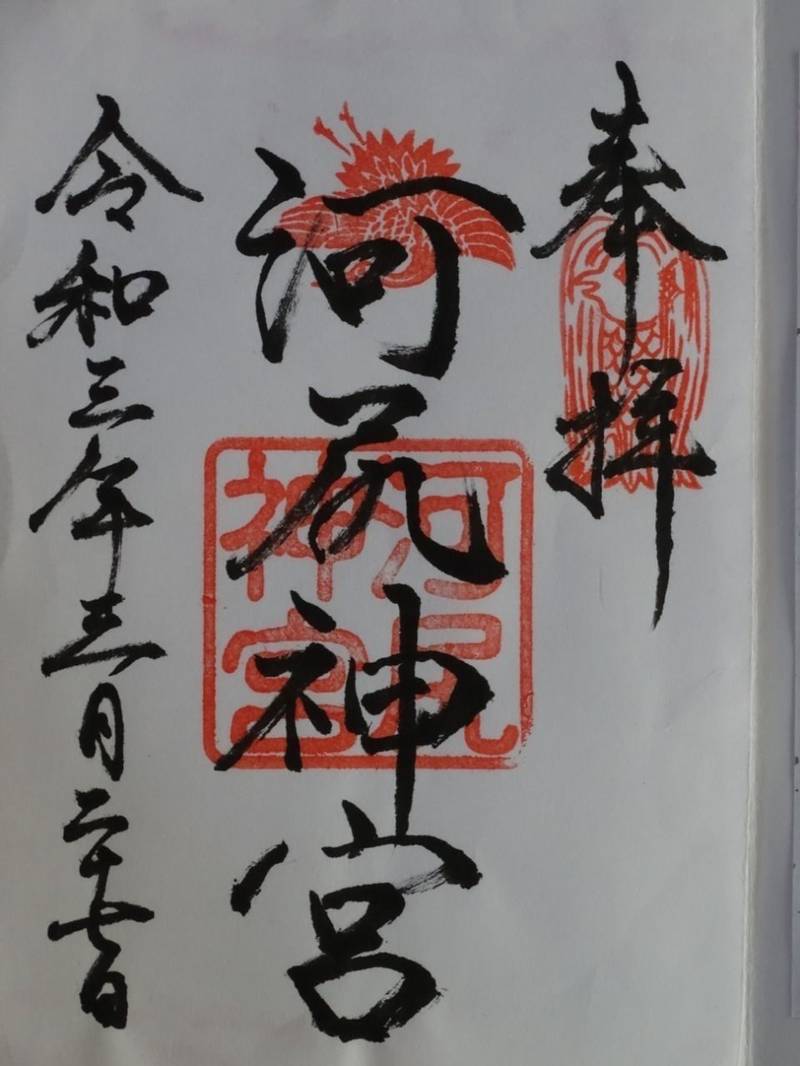 奉拝
河尻神宮
河尻神宮
令和三年三月二十七日